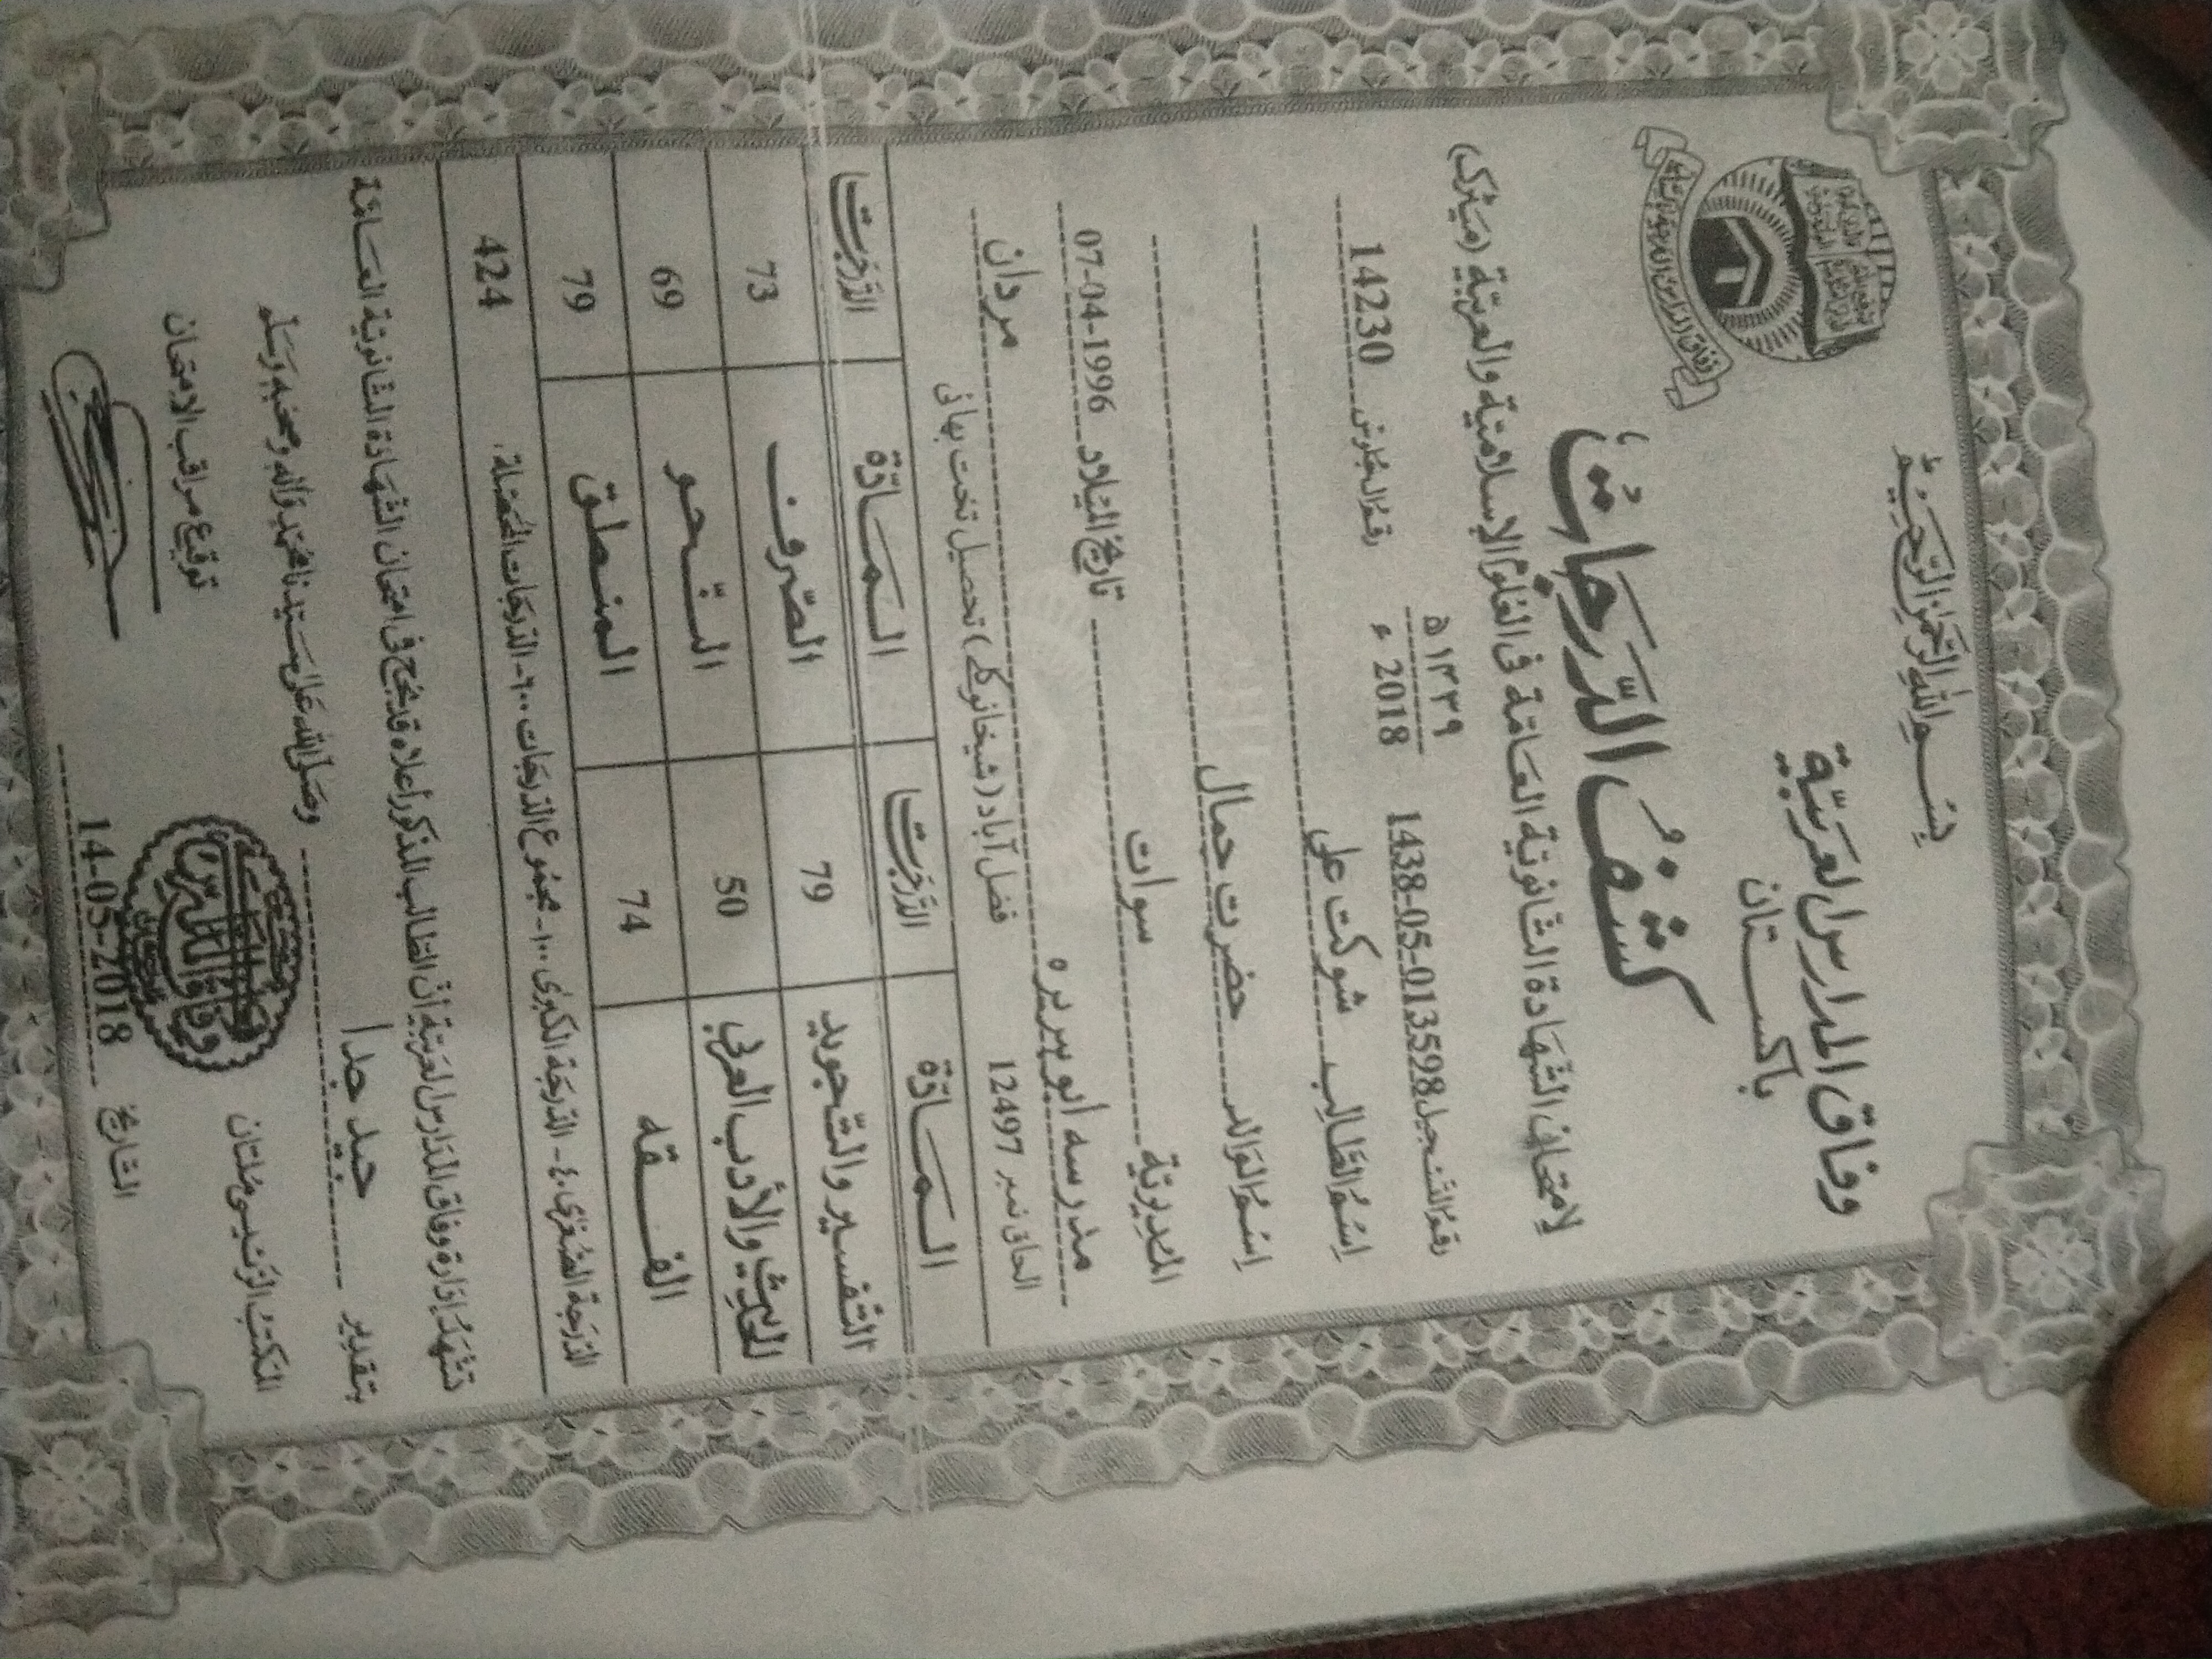 بسم الله الرحمن الرحيم
وفاق المدارس العربية
باكستان
كشف الدرجات
لامتحان الشهادة الثانوية العامة في العلوم الإسلامية والعربية (ميٹرک)
رقم التسجيل 1438-05-013598 ١٤٣٩ھ 2018 ء رقم الجلوس 14230
اسم الطالب شوكت علی
اسم الوالد حضرت جمال
المديرية سوات تاريخ الميلاد 07-04-1996
مدرسہ ابو ہریرہ
الحاق نمبر 12497 فضل آباد (شیخانو کلے) تحصیل تخت بھائی مردان
المادة الدرجات المادة الدرجات
التفسير والتجويد 79 الصرف 73
الحديث والأدب العربي 50 النحو 69
الفقه 74 المنطق 79
الدرجة الصغرى ٤٠- الدرجة الكبرى ١٠٠- مجموع الدرجات ٦٠٠- الدرجات المحصلة. 424
تشهد إدارة وفاق المدارس العربية أن الطالب المذكور أعلاه قد نجح في امتحان الشهادة الثانوية العامة
بتقدير جيد جدا وصلى الله على سيدنا محمد وآله وصحبه وسلم
المكتب الرئيسي ملتان توقيع مراقب الامتحان
التاريخ 14-05-2018